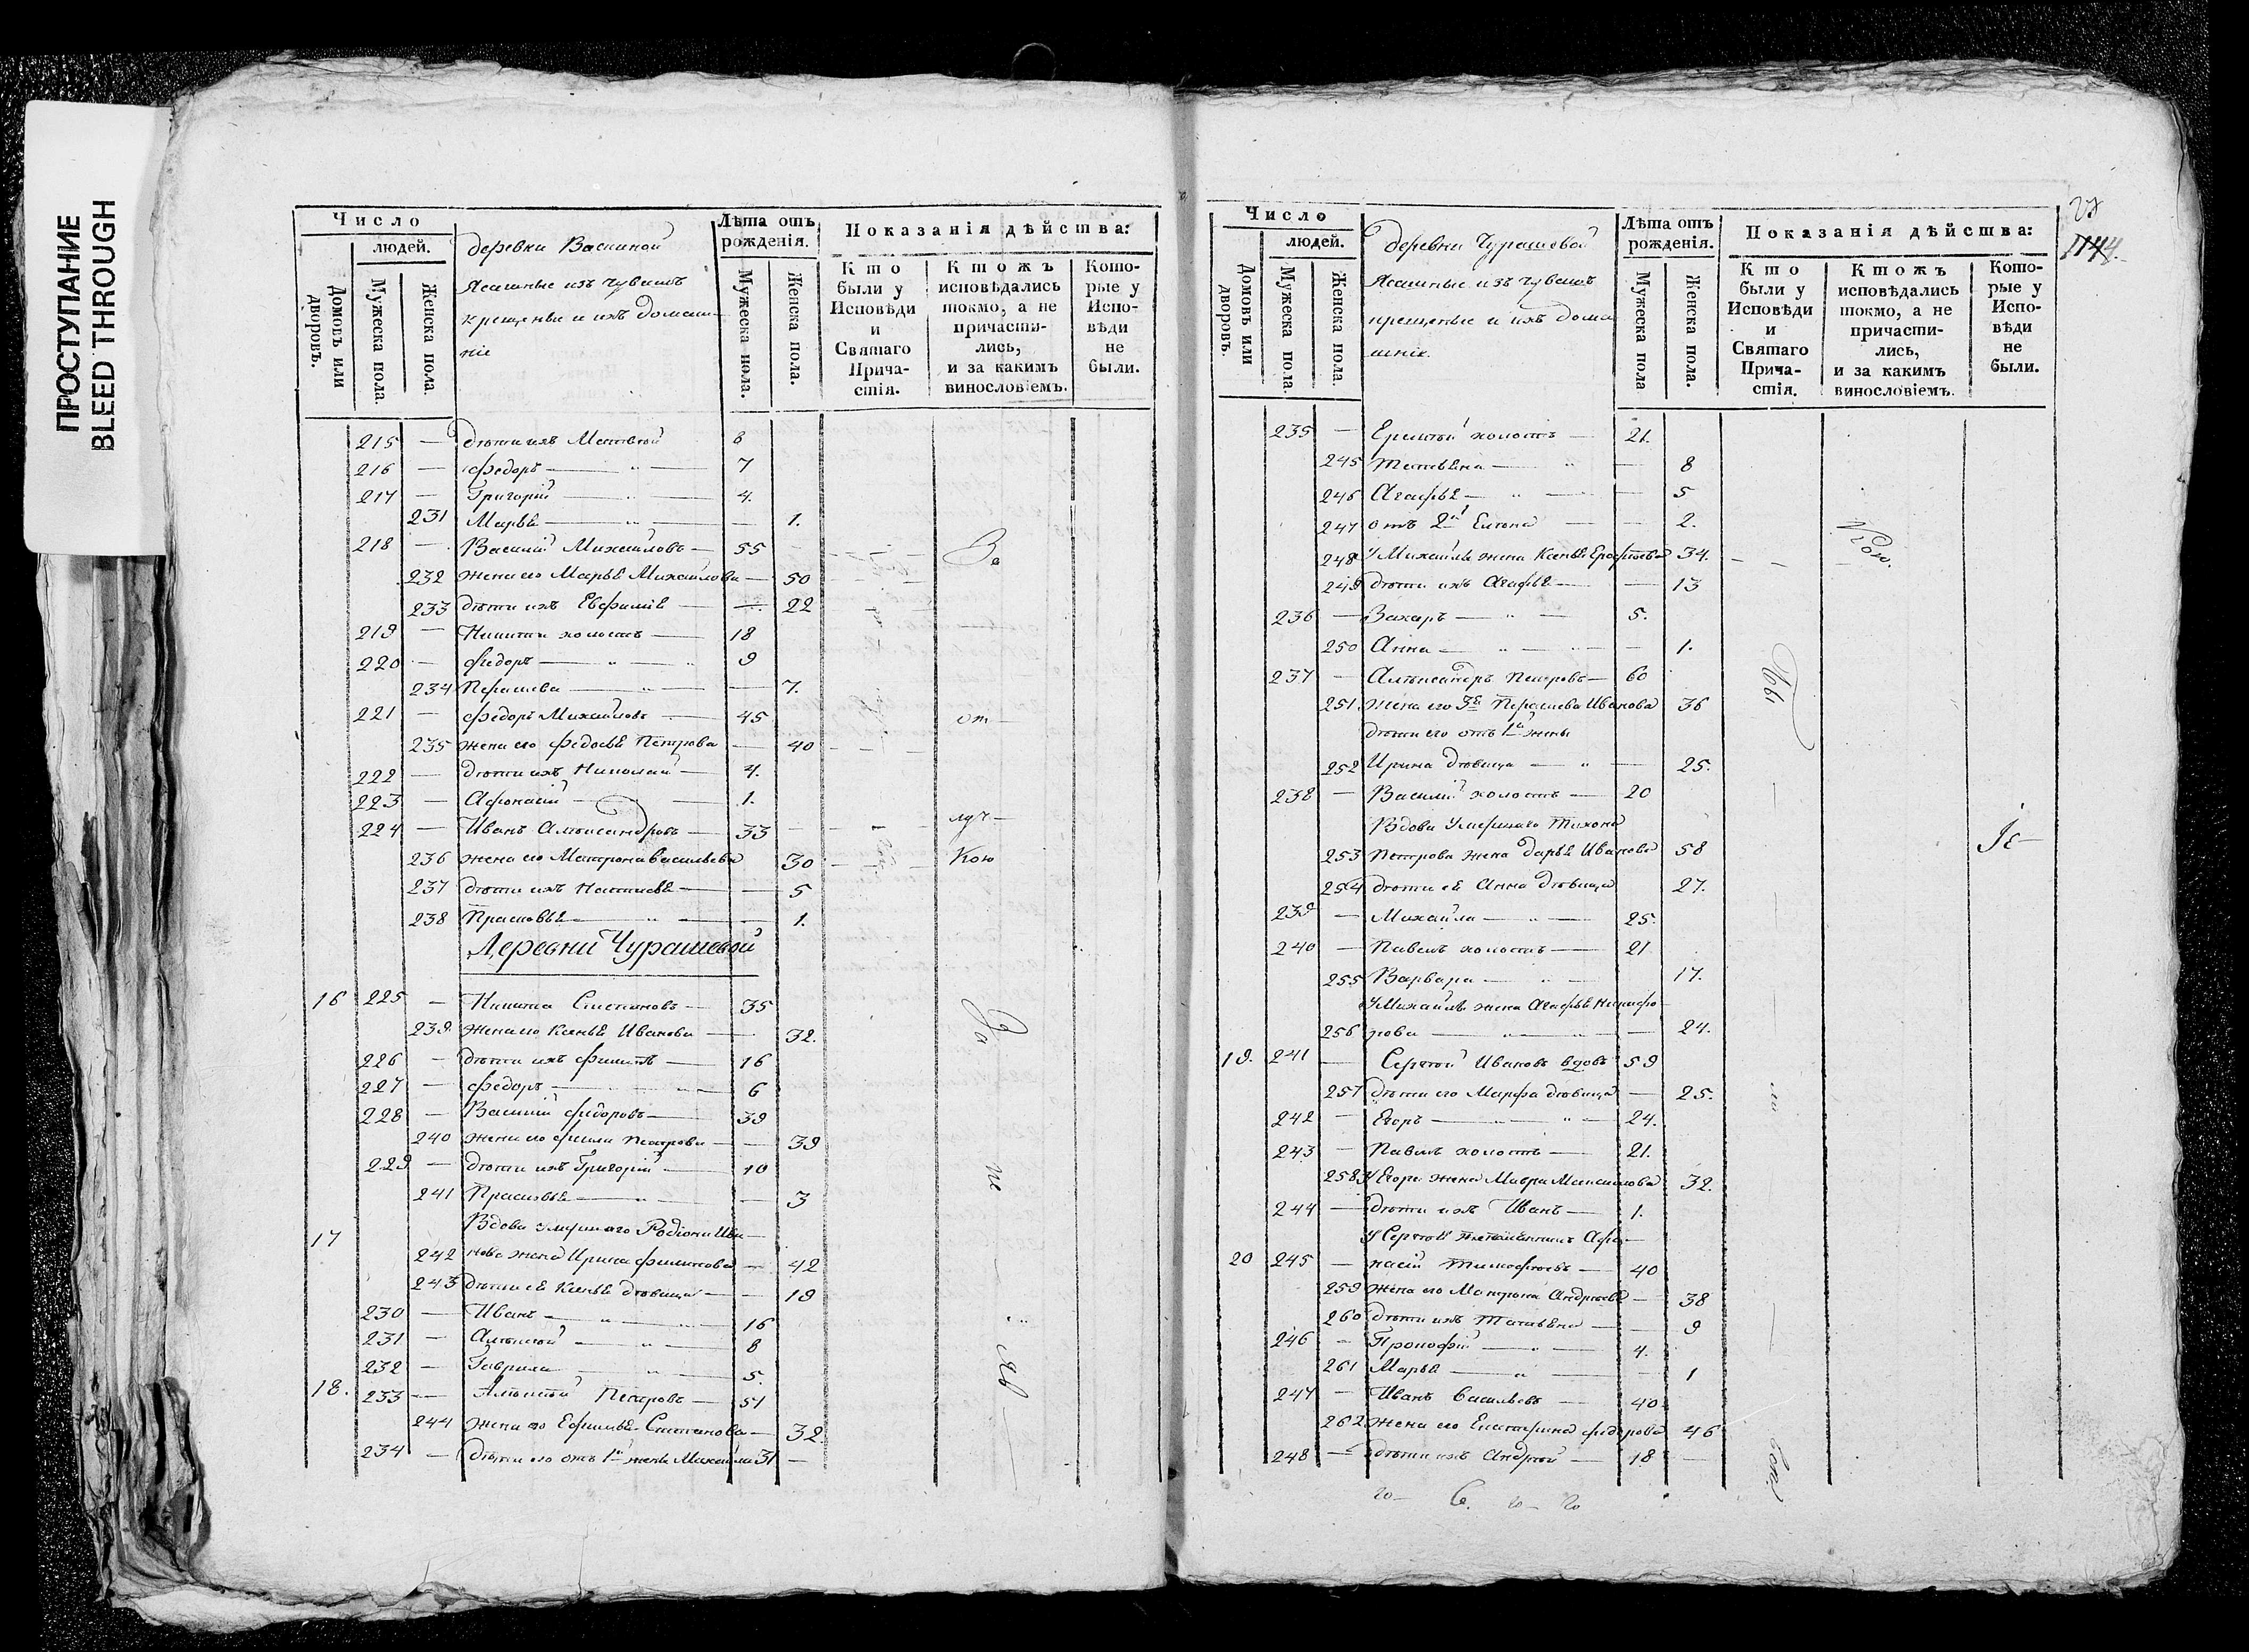 ПРОСТУПАНИЕ
BLEED THROUGH
Число
людей.
Домовъ или дворовъ.
Мужеска пола.
Женска пола.
деревни Васкиной
Ясашные изъ чувашъ
крещеные и ихъ домаш—
ніе
Лѣта отъ рожденія.
Мужеска пола.
Женска пола.
Показанія дѣйства:
Кто были у Исповѣди и Святаго Причастія.
Ктожъ исповѣдались токмо, а не причастились, и за какимъ винословіемъ.
Которые у Исповѣди не были.
215 — дѣти ихъ Матвей 8
216 — Федоръ — 7
217 — Григорій — 4.
231 Марья — 1.
218 — Василій Михайловъ — 55
232 жена его Марья Михайлова — 50
233 дѣти ихъ Евфимія — 22
219 — Никита холостъ — 18
220 — Федоръ — 9
234 Парасева — 7.
221 — Федоръ Михайловъ — 45
235 жена его Федосья Петрова — 40
222 — дѣти ихъ Николай — 4.
223 — Афонасій — 1.
224 — Иванъ Александровъ — 33
236 жена его Матрона Васильева 30
237 дѣти ихъ Настасья — 5
238 Прасковья — 1.
За
от—
луч—
кою
Деревни Чурашевой
16 225 — Никита Степановъ — 35
239. жена его Ксенья Иванова — 32.
226 — дѣти ихъ Филипъ — 16
227 — Федоръ — 6
228 — Василій Федоровъ — 39
240 жена его Фекла Петрова — 39
229 — дѣти ихъ Григорій — 10
241 Прасковья — 3
17 Вдова умершаго Родіона Ива—
242 нова жена Ирина Филипова — 42
243 дѣти ея Ксенья дѣвица — 19
230 — Иванъ — 16
231 — Алексей — 8
232 — Гаврила — 5.
18. 233 — Алексей Петровъ — 51
244 жена его Ефимья Степанова — 32.
234 — дѣти его отъ 1й жены Михайла 31 —
За
не
яв
Число
людей.
Домовъ или дворовъ.
Мужеска пола.
Женска пола.
деревни Чурашовой
Ясашные изъ чувашъ
крещеные и ихъ дома
шніе.
Лѣта отъ рожденія.
Мужеска пола
Женска пола.
Показанія дѣйства:
Кто были у Исповѣди и Святаго Причастія.
Ктожъ исповѣдались токмо, а не причастились, и за какимъ винословіемъ.
Которые у Исповѣди не были.
235 — холостъ — 21.
245 Татьяна — 8
246 Агафья — 5
247 отъ 2й Елена — 2.
248 У Михайлы жена Ксенья Ерофеева 34.
249 дѣти ихъ Агафья — 13
236 — Захаръ — 5.
250 Анна — 1.
237 — Александръ Петровъ — 60
251 жена его 3я Парасева Иванова 36
дѣти его отъ 1й жены
252 Ирина дѣвица — 25.
238 — Василій холостъ — 20
Вдова Умершаго Тихона
253 Петрова жена Дарья Иванова 58
254 дѣти ея Анна дѣвица 27.
239 — Михайла — 25.
240 — Павелъ холостъ — 21
255 Варвара — 17.
У Михайлы жена Агафья Никифо—
256 рова — 24.
19. 241 — Сергей Ивановъ вдовъ 59
257 дѣти его Марфа дѣвица — 25.
242 — Егоръ — 24.
243 — Павелъ холостъ — 21.
258 У Егора жена Мавра Максимова 32.
244 — дѣти ихъ Иванъ — 1.
У Сергея племянникъ Афо—
20 245 — насій Тимофеевъ — 40
259 жена его Матрона Андреева — 38
260 дѣти ихъ Татьяна — 9
246 — Прокофій — 4.
261 Марья — 1
247 — Иванъ Васильевъ — 40
262 жена его Екатерина Федорова 46
248 — дѣти ихъ Андрей — 18 —